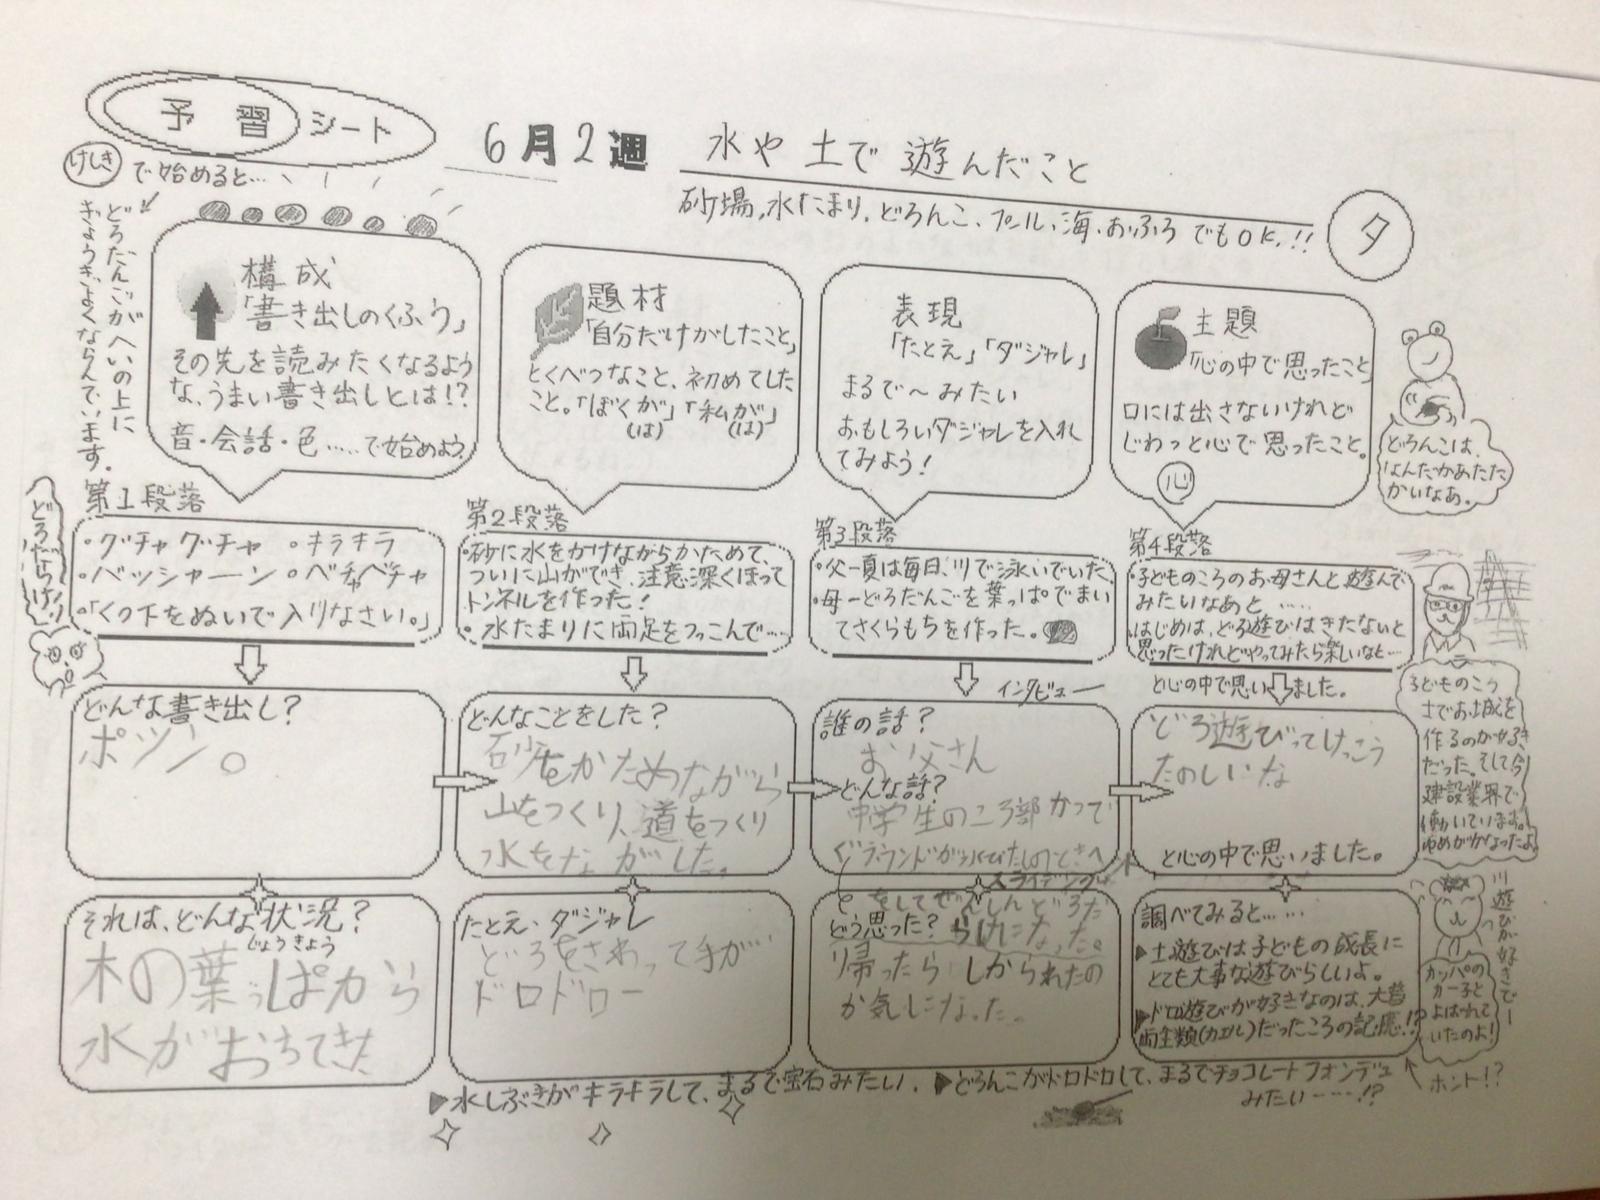 予習シート
6月2週
水や土で遊んだこと
砂場、水たまり、どろんこ、プール、海、おふろでもOK!!
タ
けしきで始めると…
どろだんごがへいの上に
ぎょうぎよくならんでいます。
構成
「書き出しのくふう」
その先を読みたくなるよう
な、うまい書き出しとは!?
音・会話・色……で始めよう。
題材
「自分だけがしたこと」
とくべつなこと、初めてした
こと。「ぼくが」「私が」
(は) (は)
表現
「たとえ」「ダジャレ」
まるで〜みたい
おもしろいダジャレを入れ
てみよう!
主題
「心の中で思ったこと」
口には出さないけれど
じわっと心で思ったこと。
心
どろんこは、
なんだかあたた
かいなあ。
どろだらけ!
第1段落
・グチャグチャ ・キラキラ
・バッシャーン ・ベチャベチャ
・「くつ下をぬいで入りなさい。」
第2段落
・砂に水をかけながらかためて、
ついに山ができ、注意深くほって
トンネルを作った!
・水たまりに両足をつっこんで…
第3段落
・父ー夏は毎日、川で泳いでいた。
・母ーどろだんごを葉っぱでまい
てさくらもちを作った。
インタビュー
第4段落
・子どものころのお母さんと遊んで
みたいなあと……
・はじめは、どろ遊びはきたないと
思ったけれどやってみたら楽しいなと…
と心の中で思いました。
どんな書き出し?
ポツン。
どんなことをした?
砂をかためながら
山をつくり、道をつくり
水をながした。
誰の話?
お父さん
どんな話?
中学生のころ部かつで
グラウンドが水びたしのときヘッド
スライディング
をしてぜんしんどろだ
らけになった。
どろ遊びってけっこう
たのしいな
と心の中で思いました。
子どものころ
土でお城を
作るのが好き
だった。そして今
建設業界で
働いています。
ゆめがかなったよ
それは、どんな状況?
じょうきょう
木の葉っぱから
水がおちてきた
たとえ・ダジャレ
どろをさわって手が
ドロドロー
どう思った?
帰ったらしかられたの
か気になった。
調べてみると……
▶土遊びは子どもの成長に
とても大事な遊びらしいよ。
▶ドロ遊びが好きなのは、大昔
両生類(カエル)だったころの記憶!?
ホント!?
川遊びが好きでー
カッパの
カー子と
よばれて
いたのよ!
▶水しぶきがキラキラして、まるで宝石みたい。
▶どろんこがドロドロして、まるでチョコレートフォンデュ
みたい……!?